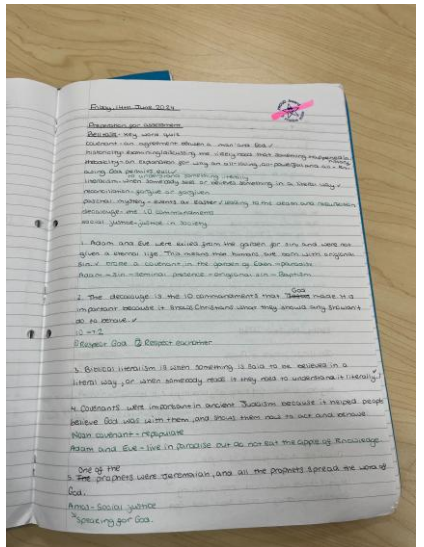 Friday 14th June 2024
Preparation for assessment
Retrieval - key word quiz
covenant - an agreement between a man and God ✓
historicity - examining/allowing the likelyhood that something happened in history
theodicy - an explanation for why an all-loving, all-powerful and all-knowing God permits evil ✓
to understand something literally
literalism - when somebody said or believes something in a literal way ✓
reconciliation - forgive or forgiven
paschal mystery - events of Easter ✓ leading to the death and resurrection
decalogue - the 10 commandments
social justice - justice in society
1. Adam and Eve were exiled from the garden for sin and were not
given a eternal life. This means that humans are born with original
sin. ✓ broke a covenant in the garden of Eden - paradise
Adam - sin - seminal presence - original sin - Baptism
God
2. The decalogue is the 10 commandments that made it is
important because it shows Christians what they should and shouldn't
do to behave. ✓
10 → 2
① Respect God ② Respect each other
3. Biblical literalism is when something is said to be believed in a
literal way, or when somebody reads it they need to understand it literally ✓
4. Covenants were important in ancient Judaism because it helped people
believe God was with them, and shows them how to act and behave.
Noah covenant - repopulate
Adam and Eve - live in paradise but do not eat the apple of knowledge.
One of the
5. The prophets were Jeremaiah, and all the prophets spread the word of
God.
Amos - Social justice
Speaking for God.